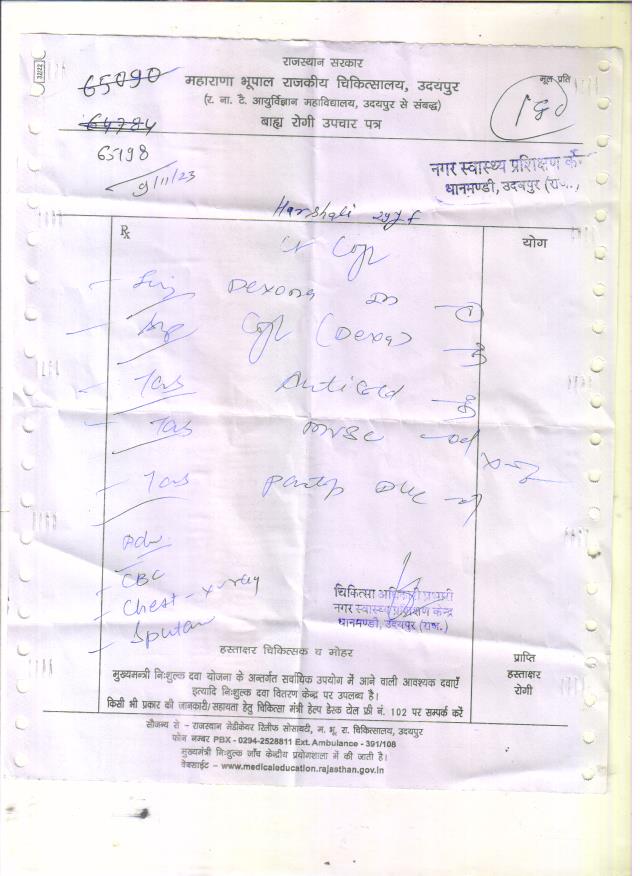 राजस्थान सरकार
65090
महाराणा भूपाल राजकीय चिकित्सालय, उदयपुर
मूल प्रति
(र. ना. टै. आयुर्विज्ञान महाविद्यालय, उदयपुर से संबद्ध)
बाह्य रोगी उपचार पत्र
64784
65198
9/11/23
नगर स्वास्थ्य प्रशिक्षण
धानमण्डी, उदयपुर (राज.)
Harshali 29y f
Rx
योग
Inj Dexona
(Dexa)
Tas Anticold
Tas MVBC od
Tas
Adv
CBC
Chest - x-ray
Sputum
चिकित्सा अधिकारी प्रभारी
नगर स्वास्थ्य प्रशिक्षण केन्द्र
धानमण्डी, उदयपुर (राज.)
हस्ताक्षर चिकित्सक व मोहर
प्राप्ति
हस्ताक्षर
रोगी
मुख्यमन्त्री निःशुल्क दवा योजना के अन्तर्गत सर्वाधिक उपयोग में आने वाली आवश्यक दवाएँ
इत्यादि निःशुल्क दवा वितरण केन्द्र पर उपलब्ध है।
किसी भी प्रकार की जानकारी/सहायता हेतु चिकित्सा मंत्री हेल्प डेस्क टोल फ्री नं. 102 पर सम्पर्क करें
सौजन्य से - राजस्थान मेडीकेयर रिलीफ सोसायटी, म. भू. रा. चिकित्सालय, उदयपुर
फोन नम्बर PBX - 0294-2528811 Ext. Ambulance - 391/108
मुख्यमंत्री निःशुल्क जाँच केन्द्रीय प्रयोगशाला में की जाती है।
वेबसाईट - www.medicaleducation.rajasthan.gov.in